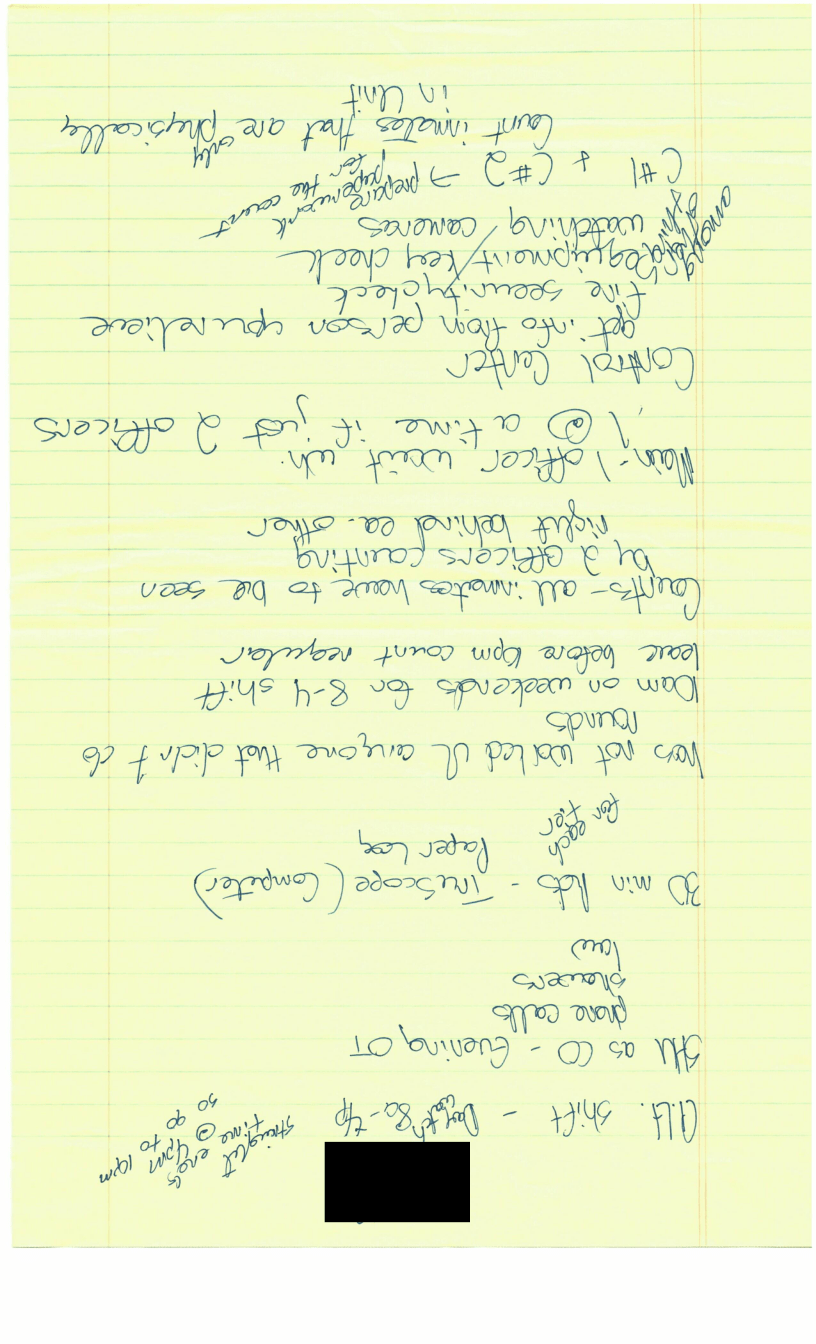 Alt. shift - Day watch 8a-4p
straight time ends @ 4pm to 10pm so go
SHU as CO - Evening, OT
phone calls
showers
law
30 min rds - TruScope (Computer)
for each tier
Paper Log
has not worked w/ anyone that didn't do
rounds
10am on weekends for 8-4 shift
leave before 10pm count regular
Counts - all inmates have to be seen
by 2 officers counting
right behind ea. other
Main, 1 officer wait wh.
1 @ a time if just 2 officers
Control Center
get info from person you relieve
fire security check
equipment/key check
watching cameras
C#1 & C#2 → prepare paperwork for the count
Count inmates that are only physically
in Unit